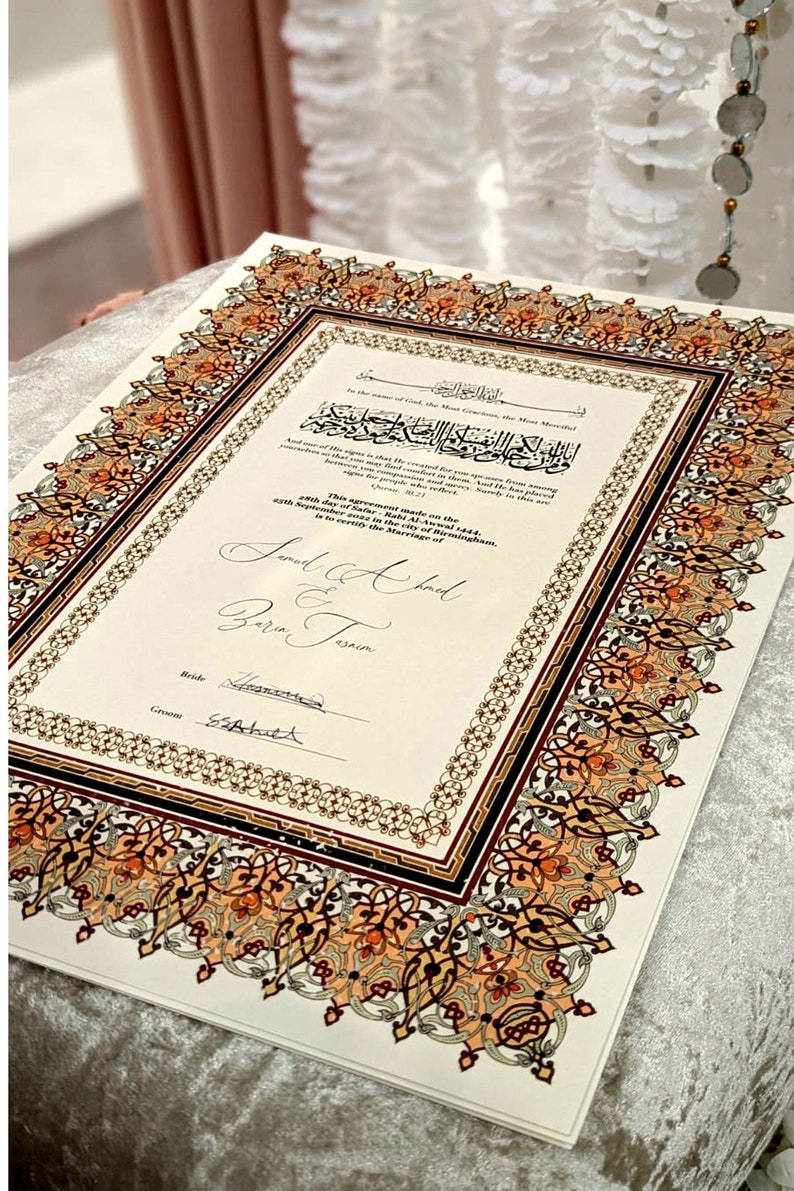 بسم الله الرحمن الرحيم
In the name of God, the Most Gracious, the Most Merciful
ومن آياته أن خلق لكم من أنفسكم أزواجا لتسكنوا إليها وجعل بينكم مودة ورحمة
And one of His signs is that He created for you spouses from among
yourselves so that you may find comfort in them. And He has placed
between you compassion and mercy. Surely in this are
signs for people who reflect.
Quran, 30.21
This agreement made on the
28th day of Safar - Rabi Al-Awwal 1444,
25th September 2022 in the city of Birmingham,
is to certify the Marriage of
Ahmed
&
Zarin Tasnim
Bride
Groom